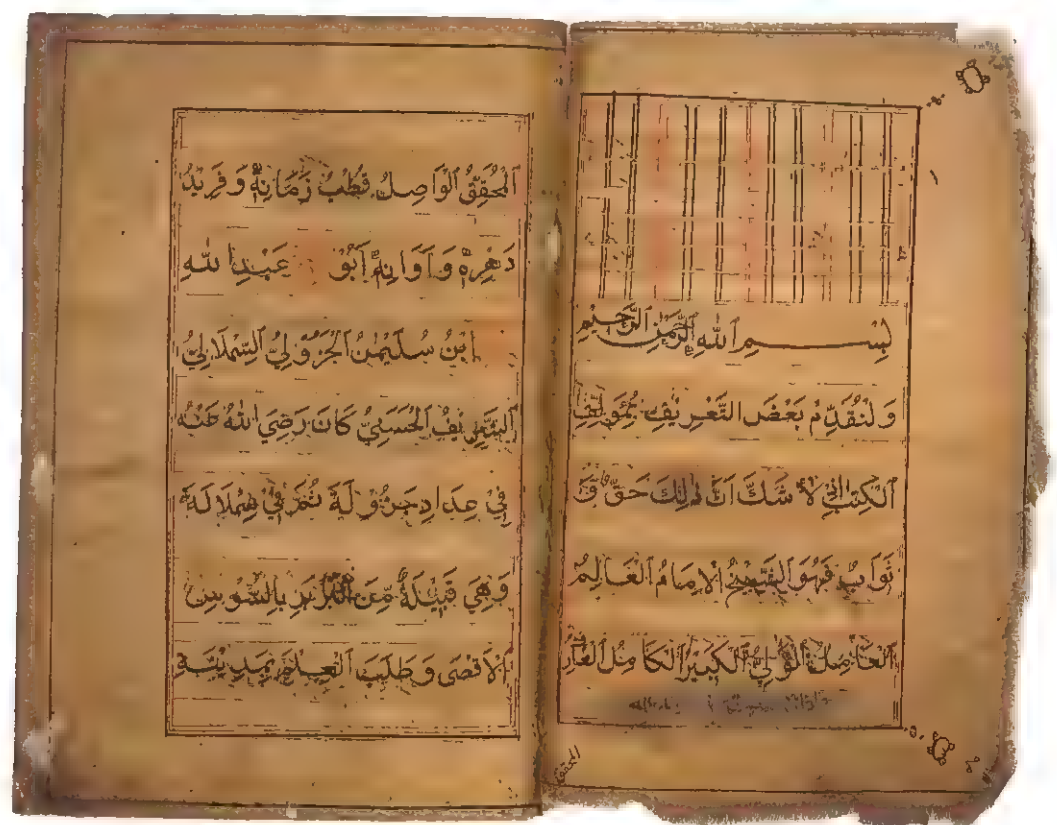 بِسْمِ ٱللّٰهِ ٱلرَّحْمٰنِ ٱلرَّحِيْمِ
وَلْنُقَدِّمْ بَعْضَ التَّعْرِيْفِ بِمُؤَلِّفِ
ٱلْكِتٰبِ لَا شَكَّ اَنَّ ذٰلِكَ حَقٌّ وَ
ثَوَابٌ فَهُوَ ٱلشَّيْخُ الْاِمَامُ ٱلْعَالِمُ
ٱلْعَامِلُ ٱلْوَلِيُّ ٱلْكَبِيْرُ ٱلْكَامِلُ ٱلْعَارِفُ
المحقق
ٱلْمُحَقِّقُ ٱلْوَاصِلُ قُطْبُ زَمَانِهٖ وَفَرِيْدُ
دَهْرِهٖ وَاَوَانِهٖ اَبُوْ عَبْدِ اللّٰهِ
اِبْنُ سُلَيْمٰنَ ٱلْجَزُوْلِيُّ ٱلسِّمْلَالِيُّ
ٱلشَّرِيْفُ ٱلْحَسَنِيُّ كَانَ رَضِيَ اللّٰهُ عَنْهُ
فِيْ عِدَادِ جَزُوْلَةَ ثُمَّ فِيْ سِمْلَالَةَ
وَهِيَ قَبِيْلَةٌ مِّنَ ٱلْبَرْبَرِ بِالسُّوْسِ
الْاَقْصٰى وَطَلَبَ ٱلْعِلْمَ بِمَدِيْنَةِ